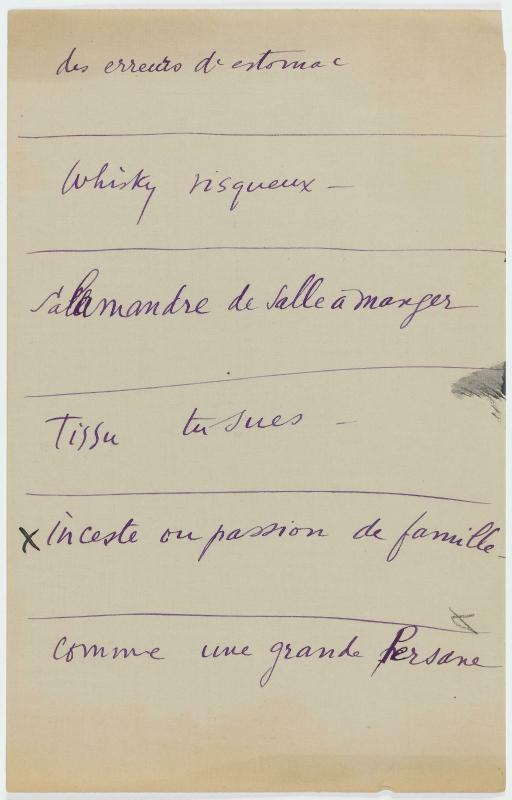 des erreurs de estomac
Whisky risqueux —
Salamandre de Salle à manger
Tissu tu sues —
X Inceste ou passion de famille
comme une grande Persane